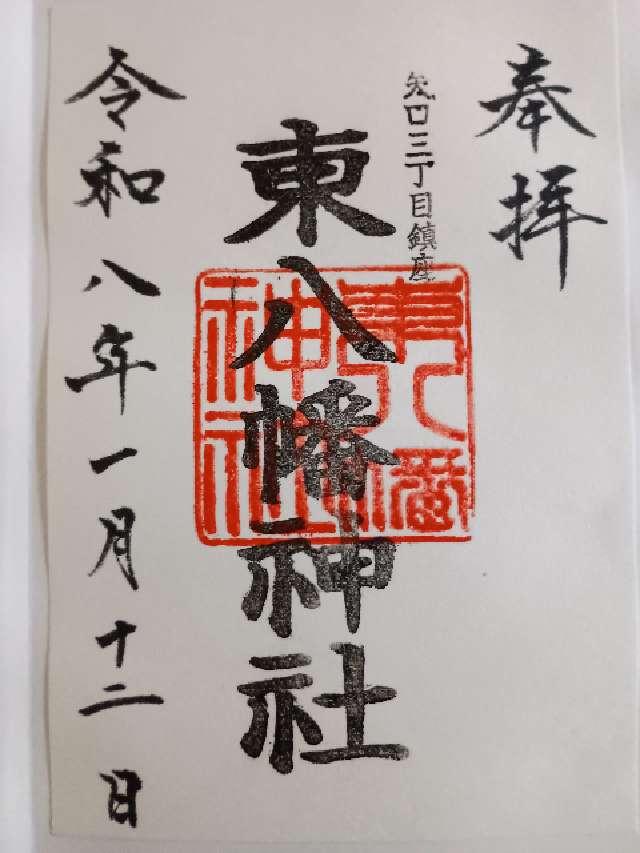 奉拝
矢口三丁目鎮座
東八幡神社
令和八年一月十二日